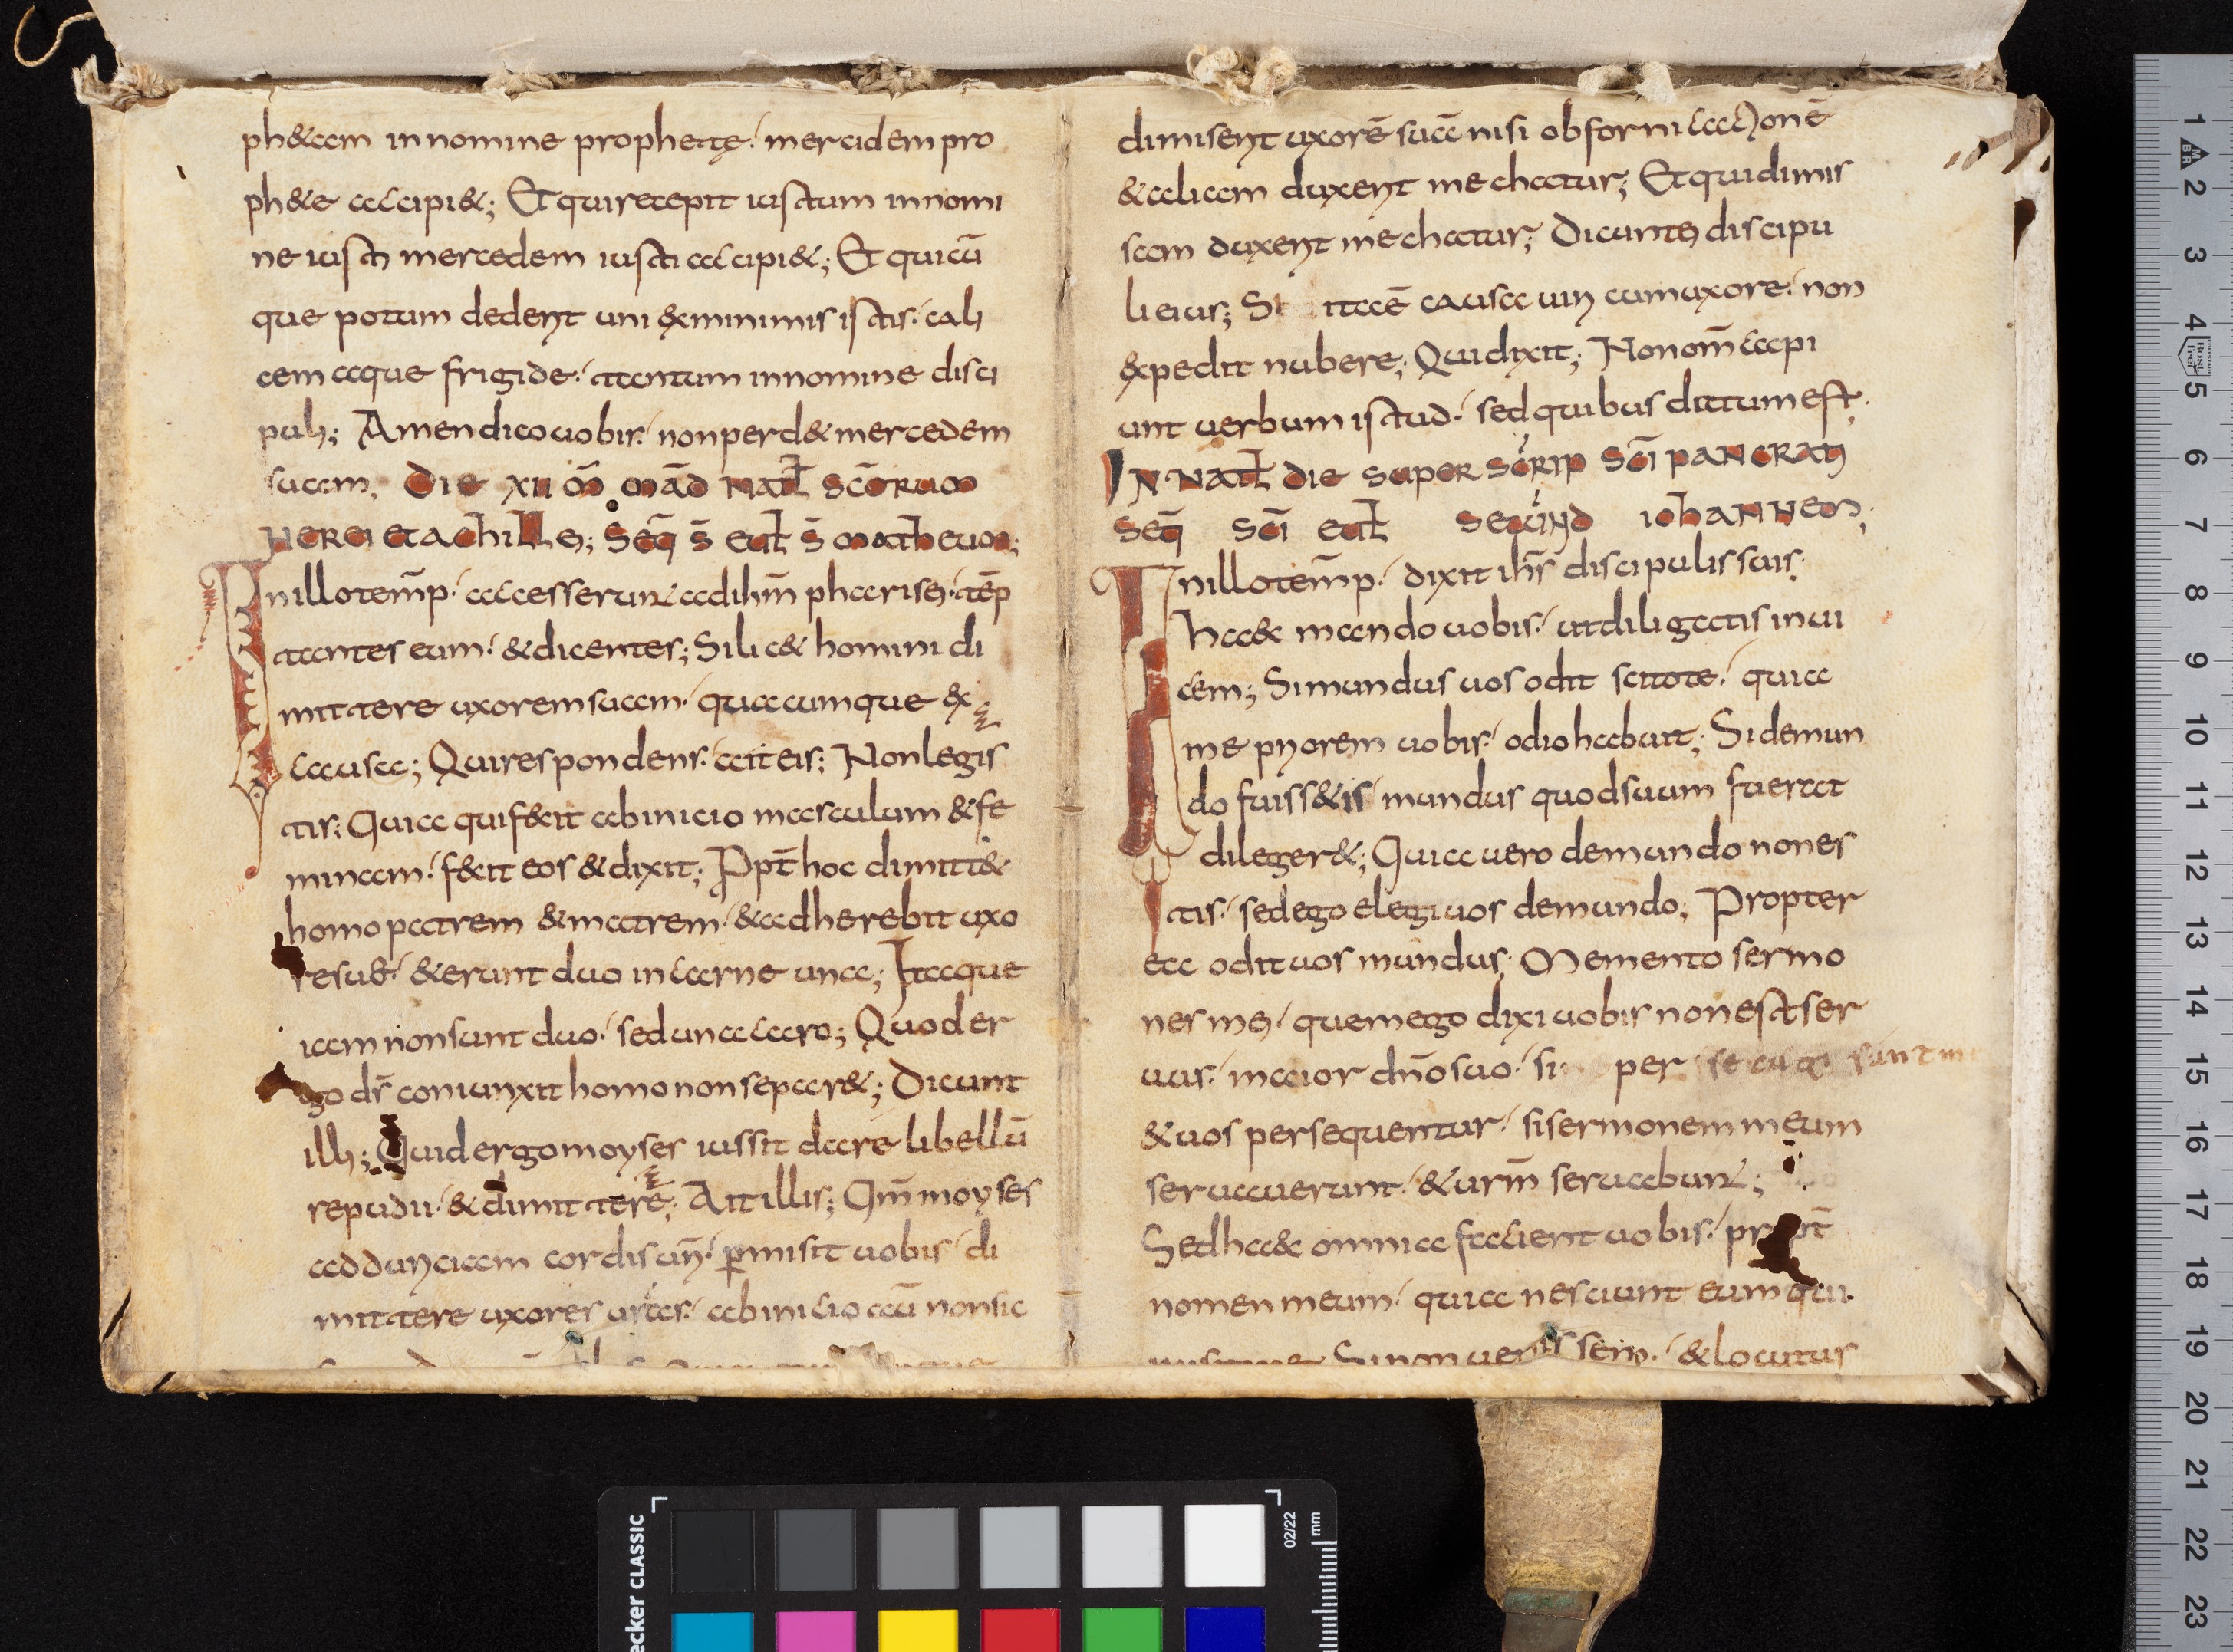 ph&am in nomine prophetę mercidem pro
ph&e accipi&; Et qui recepit iustum in nomi
ne iusti mercedem iusti accipi&; Et quicū
que potum dederit uni &minimis istis cali
cem aque frigide tantum in nomine disci
puli; Amen dico uobis non perd& mercedem
suam. DIE XII M̄ MAD̄ NAT̄ SC̄ORUM
NEREI ET ACHILLEI; SEQ̄ S̄ EUT̄ S̄ MATHEUM;
In illo tem̄p accesserunt ad ihm̄ pharisei tēp
tantes eum &dicentes; Si lic& homini di
mittere uxorem suam quacumque &x
causa; Qui respondens ait eis; Non legis
tis; Quia qui f&cit ab inicio masculum &fe
minam f&cit eos &dixit; Pp̄t hoc dimitt&
homo patrem &matrem &adherebit uxo
re su& &erunt duo in carne una; Itaque
iam non sunt duo sed una caro; Quod er
go ds̄ coniunxit homo non separ&; Dicunt
illi; Quid ergo moyses iussit dare libellū
repudii &dimittere; Ait illis; Qm̄ moyses
ad duriciam cordis uri̅ permisit uobis di
mittere uxores urās ab inicio aū non sic
dimiserit uxorē suā nisi ob fornicationē
&aliam duxerit mechatur; Et qui dimis
sam duxerit mechatur; Dicunt ei discipu
li eius; Si ita ē causa uiri cum uxore non
&xpedit nubere; Qui dixit; Non om̄ capi
unt uerbum istud sed quibus datum est.
IN NAT̄ DIE SUPER SCRIP SC̄I PANCRATI
SEQ̄ SC̄I EUT̄ SECUND IOHANNEM;
In illo tem̄p dixit ihs̄ discipulis suis
Hae& mando uobis ut diligatis inui
cem; Si mundus uos odit scitote quia
me priorem uobis odio habuit; Si de mun
do fuiss&is mundus quod suum fuerat
diliger&; Quia uero de mundo non es
tis sed ego elegi uos de mundo; Propter
ea odit uos mundus Memento sermo
nes mei quem ego dixi uobis non est ser
uus maior dn̄o suo si per se cuti sunt m
&uos persequentur si sermonem meum
seruauerunt &urm̄ seruabunt;
Sed hae& omnia facient uobis
nomen meum quia nesciunt eum qui
&locutus